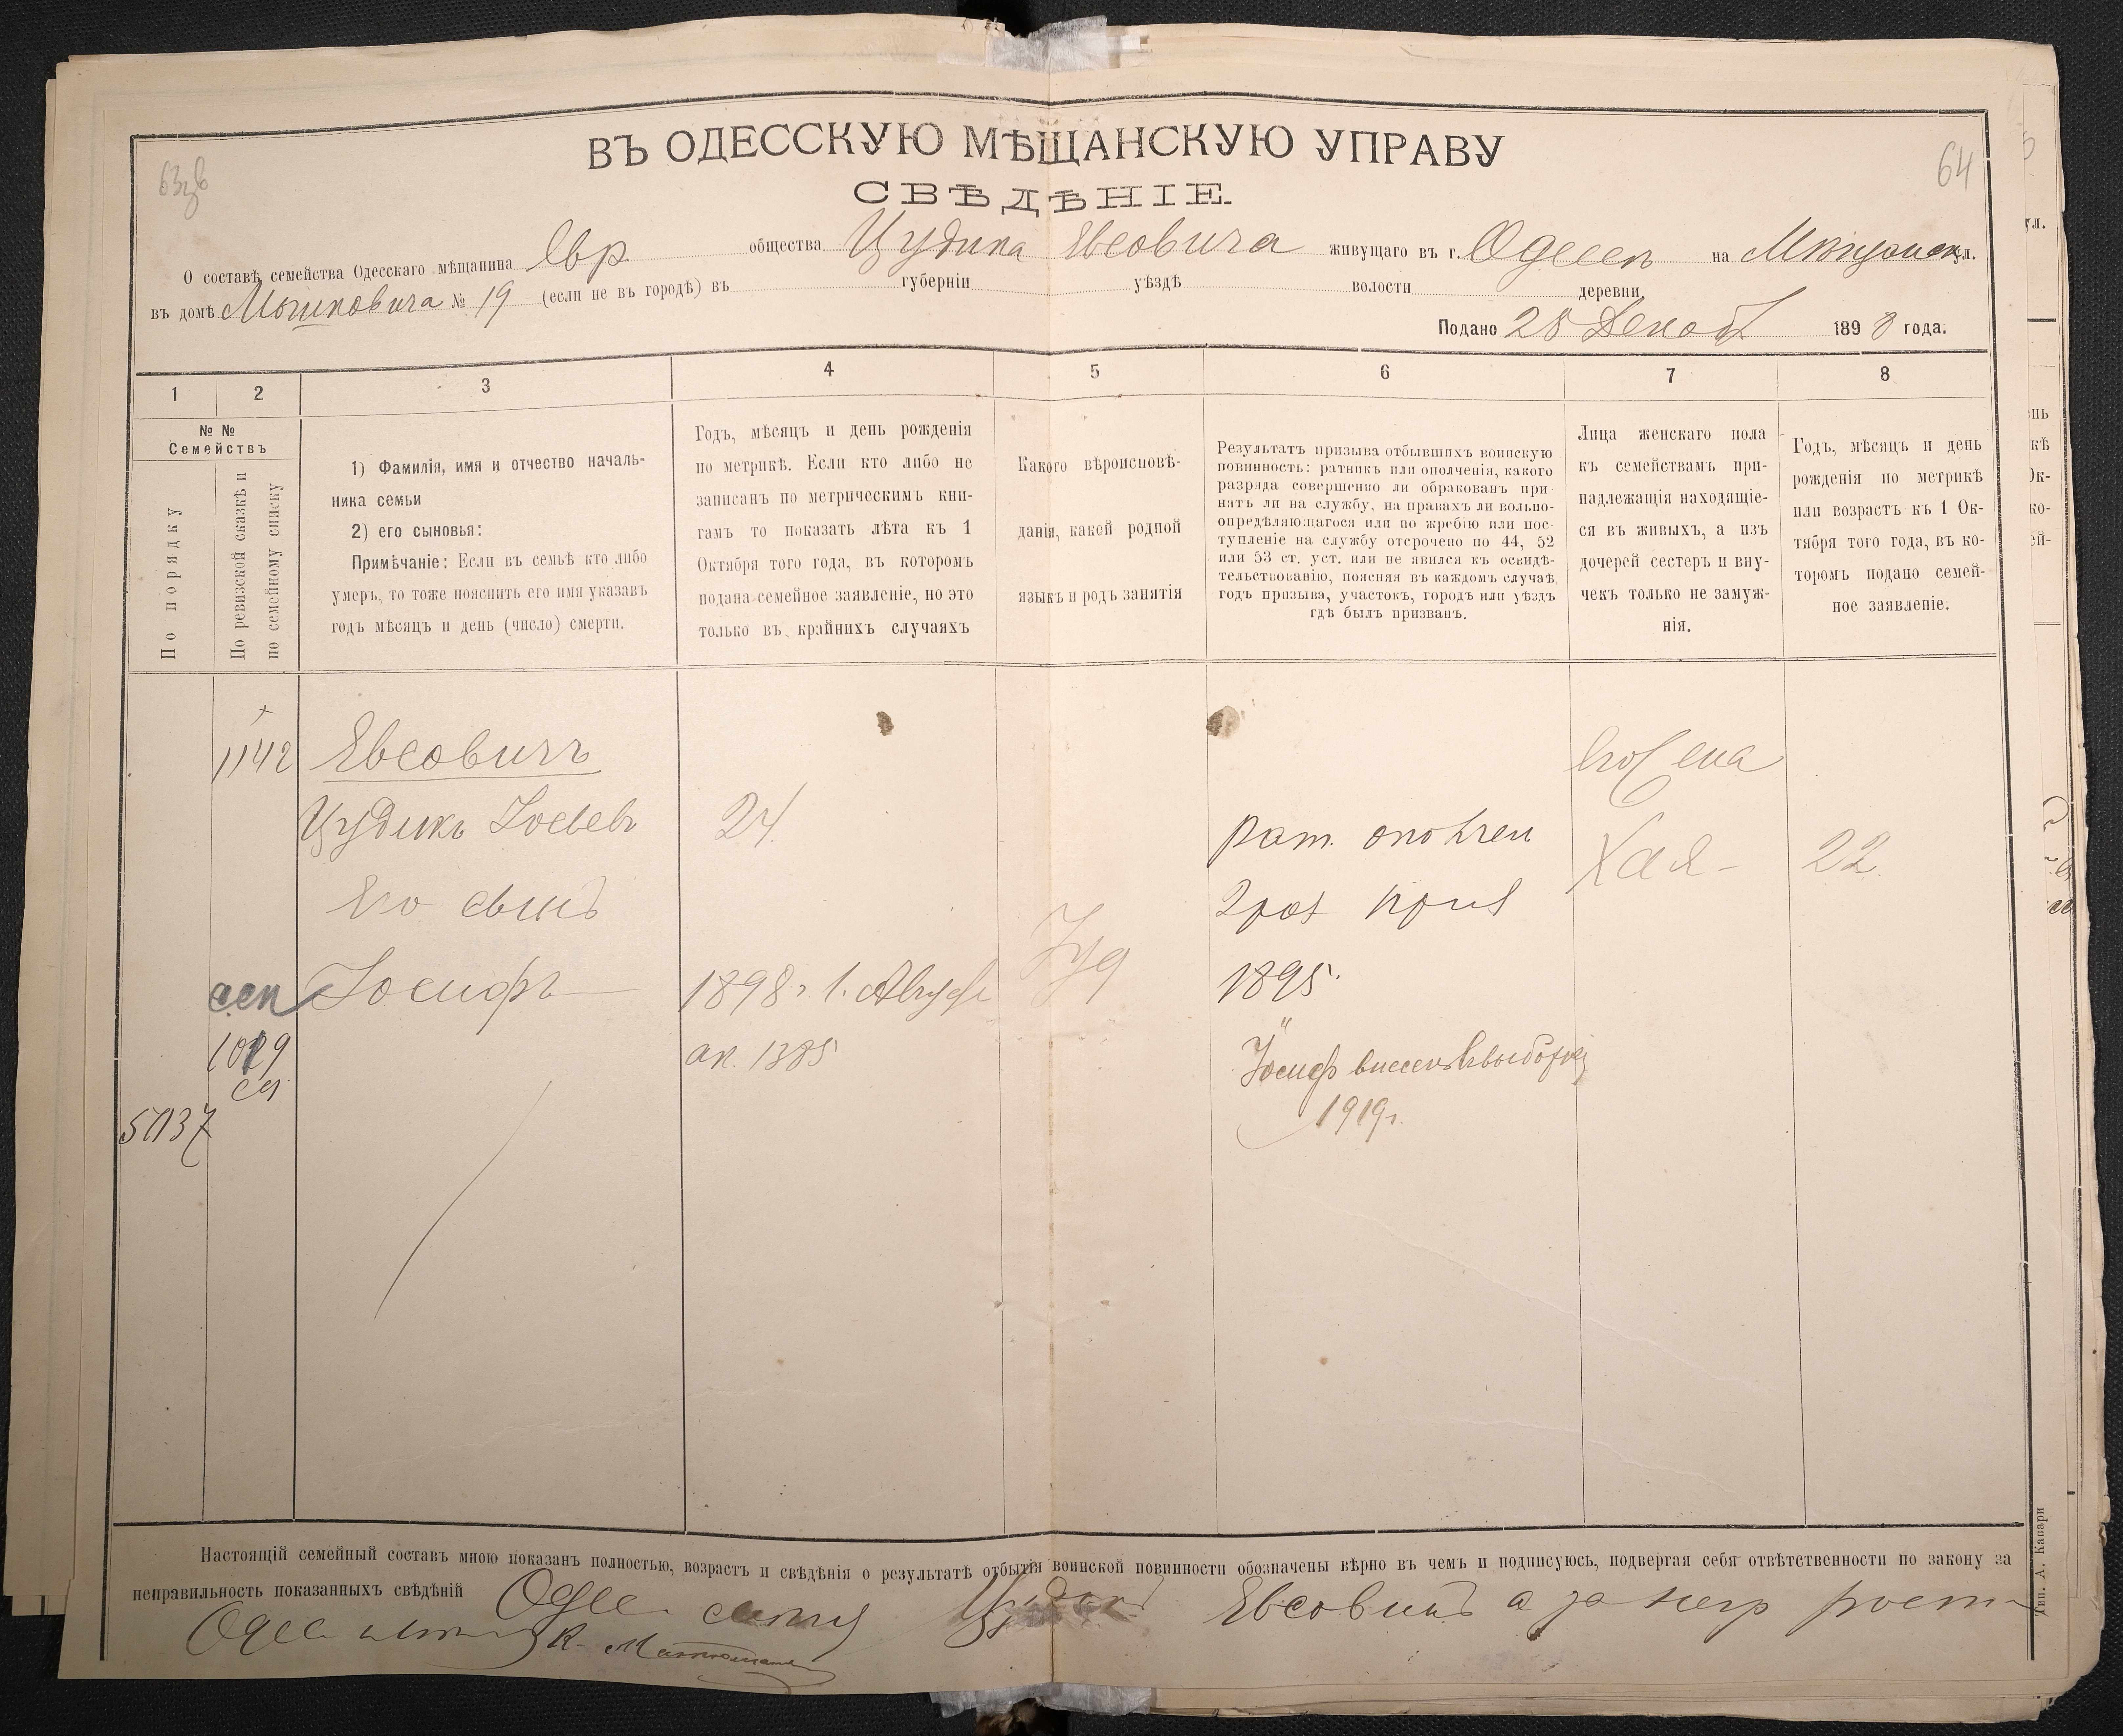 ВЪ ОДЕССКУЮ МѢЩАНСКУЮ УПРАВУ
64
СВѢДѢНІЕ
О составѣ семейства Одесскаго мѣщанина Евр общества Цудика Евсовича живущаго въ г. Одессѣ на ул.
въ домѣ № 19 (если не въ городѣ) въ губерніи уѣздѣ волости деревни
Подано 28 Декаб 1898 года.
1 2 3 4 5 6 7 8
№ №
Семействъ
По порядку
По ревизской сказкѣ и
по семейному списку
1) Фамилія, имя и отчество началь-
ника семьи
2) его сыновья:
Примѣчаніе: Если въ семьѣ кто либо
умеръ, то тоже пояснить его имя указавъ
годъ мѣсяцъ и день (число) смерти.
Годъ, мѣсяцъ и день рожденія
по метрикѣ. Если кто либо не
записанъ по метрическимъ кни-
гамъ то показать лѣта къ 1
Октября того года, въ которомъ
подана семейное заявленіе, но это
только въ крайнихъ случаяхъ
Какого вѣроисповѣ-
данія, какой родной
языкъ и родъ занятія
Результатъ призыва отбывшихъ воинскую
повинность: ратникъ или ополченія, какого
разряда совершенно ли обракованъ при-
нятъ ли на службу, на правахъ ли вольно-
опредѣляющагося или по жребію или пос-
тупленіе на службу отсрочено по 44, 52
или 53 ст. уст. или не явился къ освидѣ-
тельствованію, поясняя въ каждомъ случаѣ,
годъ призыва, участокъ, городъ или уѣздъ
гдѣ былъ призванъ.
Лица женскаго пола
къ семействамъ при-
надлежащія находящіе-
ся въ живыхъ, а изъ
дочерей сестеръ и вну-
чекъ только не замуж-
нія.
Годъ, мѣсяцъ и день
рожденія по метрикѣ
или возрастъ къ 1 Ок-
тября того года, въ ко-
торомъ подано семей-
ное заявленіе.
1142 Евсовичъ
Цудикъ 24 рат. ополчен Хая 22
Его сынъ 2 раз приз
Іосифъ 1898 г. 1. Август Іуд 1895
ак. 1385
Іосиф внесенъ
1919 г.
57137
Настоящій семейный составъ мною показанъ полностью, возрастъ и свѣдѣнія о результатѣ отбытія воинской повинности обозначены вѣрно въ чемъ и подписуюсь, подвергая себя отвѣтственности по закону за
неправильность показанныхъ свѣдѣній
Тип. А. Капари